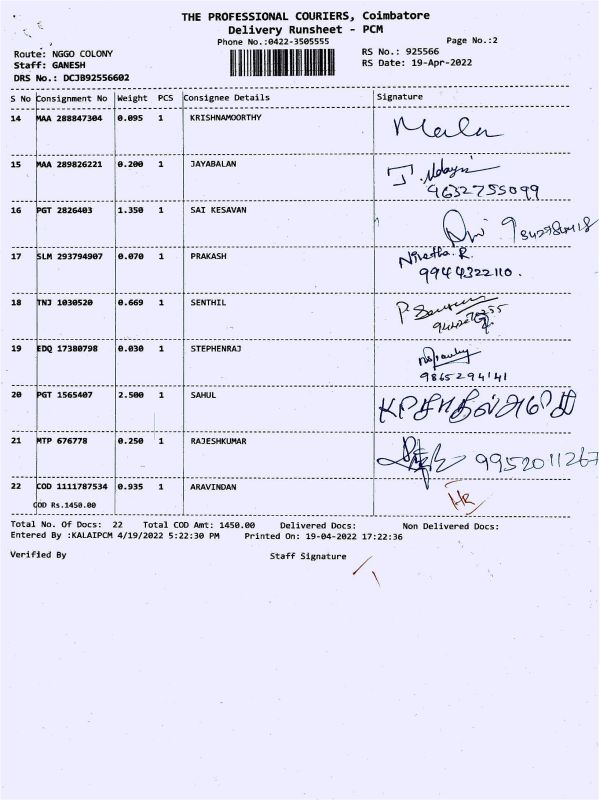 THE PROFESSIONAL COURIERS, Coimbatore
Delivery Runsheet - PCM
Phone No.:0422-3505555 Page No.:2
Route: NGGO COLONY RS No.: 925566
Staff: GANESH RS Date: 19-Apr-2022
DRS No.: DCJB92556602
S No Consignment No Weight PCS Consignee Details Signature
14 MAA 288847304 0.095 1 KRISHNAMOORTHY Mala
15 MAA 289826221 0.200 1 JAYABALAN J.
9632755099
16 PGT 2826403 1.350 1 SAI KESAVAN
17 SLM 293794907 0.070 1 PRAKASH Nivetha. R.
9944322110.
18 TNJ 1030520 0.669 1 SENTHIL P.
19 EDQ 17380798 0.030 1 STEPHENRAJ
9865294141
20 PGT 1565407 2.500 1 SAHUL
21 MTP 676778 0.250 1 RAJESHKUMAR 9952011267
22 COD 1111787534 0.935 1 ARAVINDAN
COD Rs.1450.00
Total No. Of Docs: 22 Total COD Amt: 1450.00 Delivered Docs: Non Delivered Docs:
Entered By :KALAIPCM 4/19/2022 5:22:30 PM Printed On: 19-04-2022 17:22:36
Verified By Staff Signature